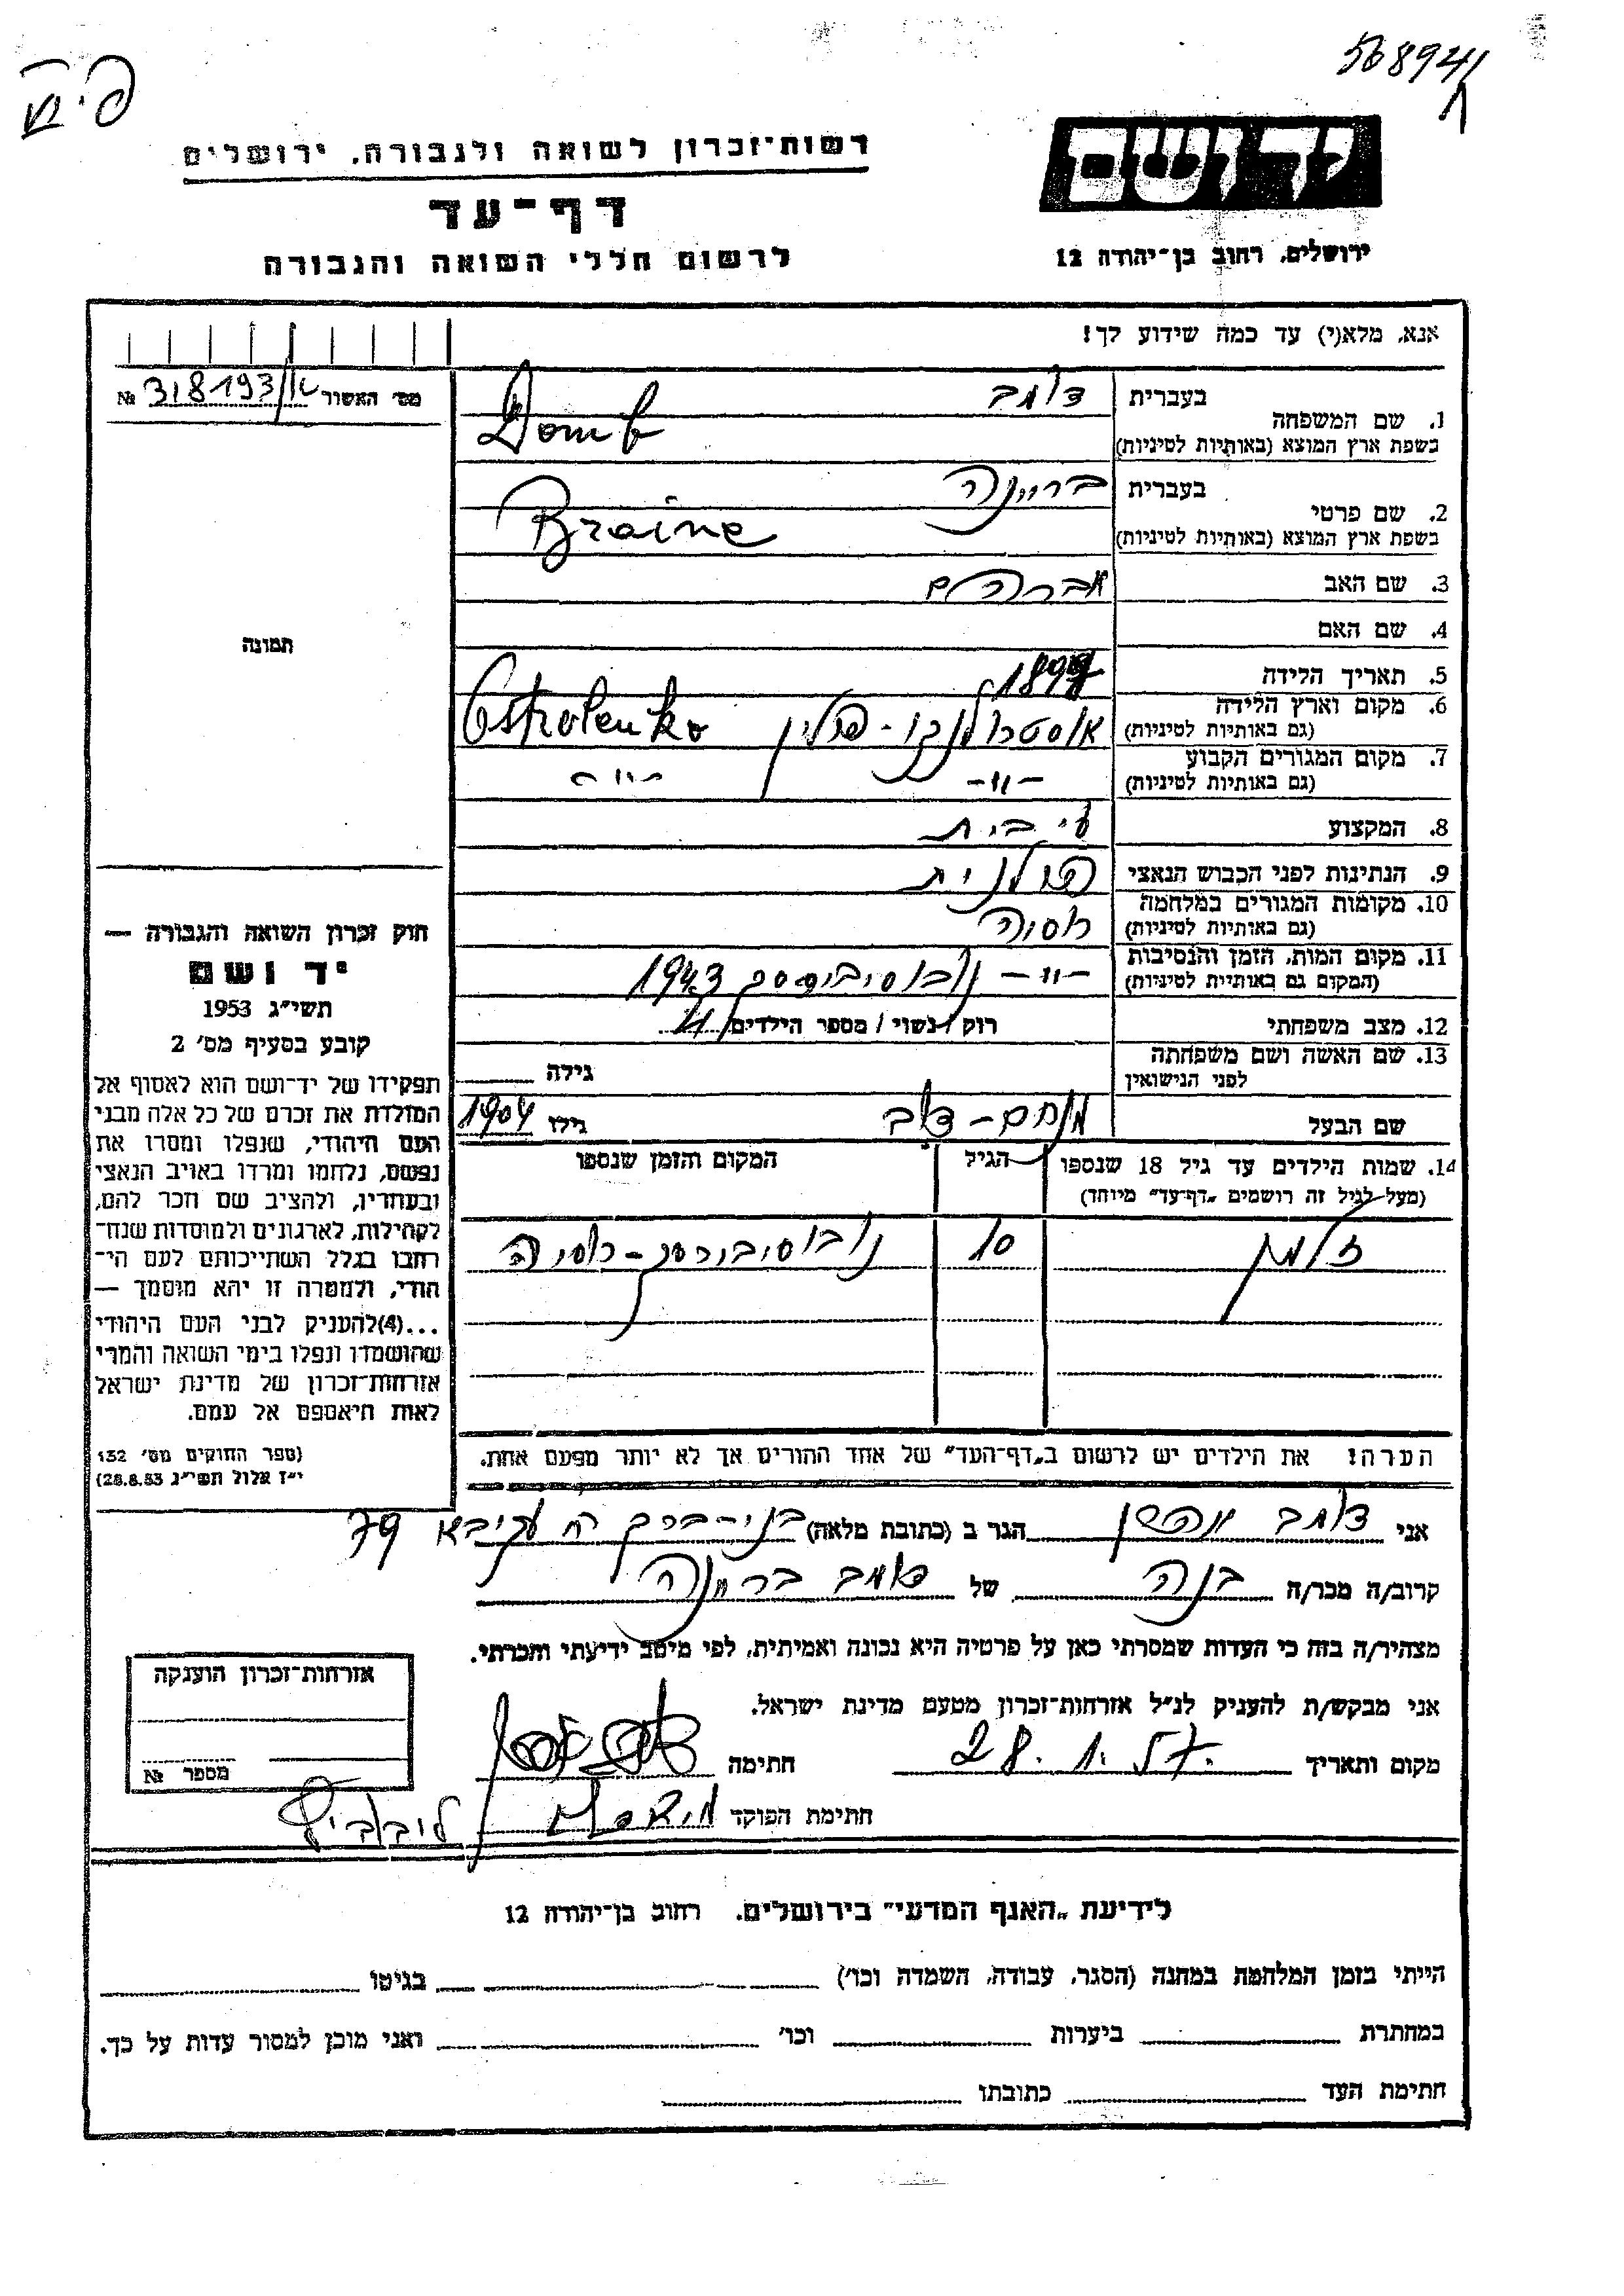 568941
פ.ט
יד ושם
רשות־זכרון לשואה ולגבורה, ירושלים
דף־עד
לרשום חללי השואה והגבורה
ירושלים, רחוב בן־יהודה 12
אנא, מלא(י) עד כמה שידוע לך!
מס' האשור № 318193/
1. שם המשפחה
בעברית דומב
בשפת ארץ המוצא (באותיות לטיניות) Domb
2. שם פרטי
בעברית בריינה
בשפת ארץ המוצא (באותיות לטיניות) Braine
3. שם האב אברהם
4. שם האם
5. תאריך הלידה
6. מקום וארץ הלידה (גם באותיות לטיניות) אוסטרולנקו - פולין Ostrolenko
7. מקום המגורים הקבוע (גם באותיות לטיניות) -״- -״-
8. המקצוע ע. בית
9. הנתינות לפני הכבוש הנאצי פולנית
10. מקומות המגורים במלחמה (גם באותיות לטיניות) רוסיה
11. מקום המות, הזמן והנסיבות (המקום גם באותיות לטיניות) -״- נובוסיבירסק 1943
12. מצב משפחתי רוק / נשוי / מספר הילדים
13. שם האשה ושם משפחתה לפני הנישואין גילה
שם הבעל מנחם - דוב גילו 1904
14. שמות הילדים עד גיל 18 שנספו (מעל לגיל זה רושמים „דף־עד" מיוחד) הגיל המקום והזמן שנספו
זלמן 10 נובוסיבירסק - רוסיה
הערה! את הילדים יש לרשום ב„דף־העד" של אחד ההורים אך לא יותר מפעם אחת.
תמונה
חוק זכרון השואה והגבורה —
יד ושם
תשי״ג 1953
קובע בסעיף מס' 2
תפקידו של יד־ושם הוא לאסוף אל
המולדת את זכרם של כל אלה מבני
העם היהודי, שנפלו ומסרו את
נפשם, נלחמו ומרדו באויב הנאצי
ובעוזריו, ולהציב שם וזכר להם,
לקהילות, לארגונים ולמוסדות שנח־
רבו בגלל השתייכותם לעם הי־
הודי, ולמטרה זו יהא מוסמך —
...(4) להעניק לבני העם היהודי
שהושמדו ונפלו בימי השואה והמרי
אזרחות־זכרון של מדינת ישראל
לאות היאספם אל עמם.
(ספר החוקים מס' 132
י״ז אלול תשי״ג 28.8.53)
אני דומב הגר ב (כתובת מלאה) בני-ברק ר׳ עקיבא 79
קרוב/ה מכר/ה בנה של דומב בריינה
מצהיר/ה בזה כי העדות שמסרתי כאן על פרטיה היא נכונה ואמיתית, לפי מיטב ידיעתי והכרתי.
אני מבקש/ת להעניק לנ״ל אזרחות־זכרון מטעם מדינת ישראל.
מקום ותאריך 28.1.57. חתימה
חתימת הפוקד
אזרחות־זכרון הוענקה
מספר №
לידיעת „האגף המדעי" בירושלים. רחוב בן־יהודה 12
הייתי בזמן המלחמה במחנה (הסגר, עבודה, השמדה וכו') בגיטו
במחתרת ביערות וכו' ואני מוכן למסור עדות על כך.
חתימת העד כתובתו